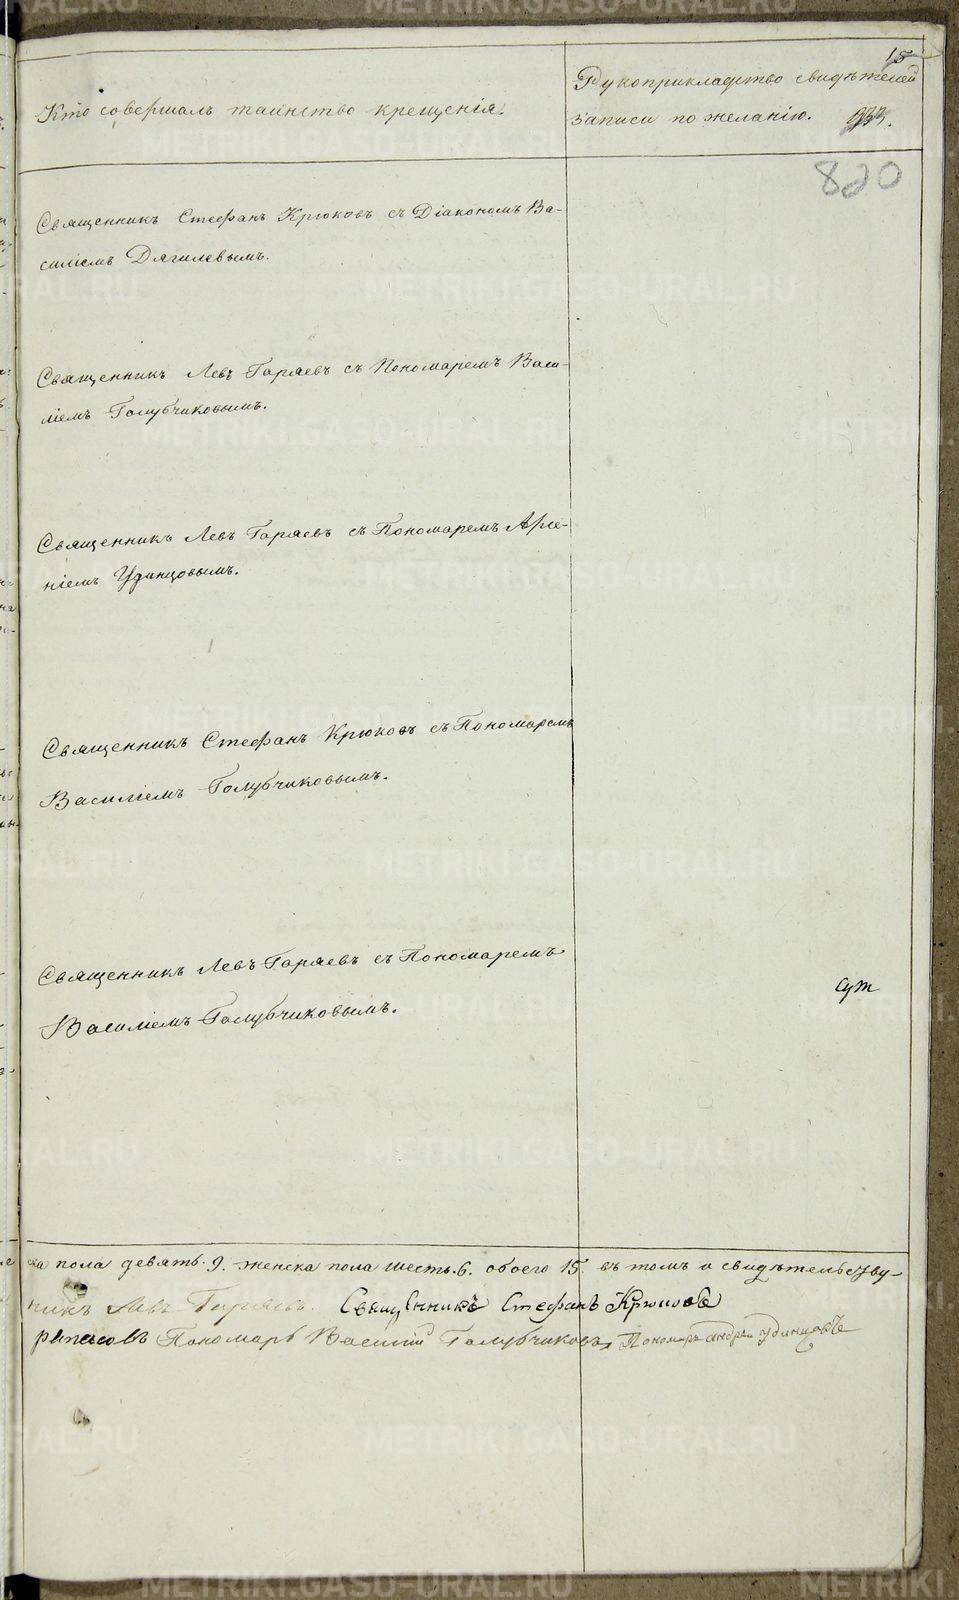 15
Кто совершалъ таинство крещенія.
Рукоприкладство свидѣтелей
записи по желанію.
820
Священникъ Стефанъ Крюковъ съ Діакономъ Ва-
силіемъ Дягилевымъ.
Священникъ Левъ Гаряевъ съ Пономаремъ Васи-
ліемъ Голубчиковымъ.
Священникъ Левъ Гаряевъ съ Пономаремъ Арсе-
ніемъ Удинцовымъ.
Священникъ Стефанъ Крюковъ съ Пономаремъ
Василіемъ Голубчиковымъ.
Священникъ Левъ Гаряевъ съ Пономаремъ
Василіемъ Голубчиковымъ.
ска пола девять. 9. женска пола шесть. 6. обоего 15. въ томъ и свидѣтельству-
никъ Левъ Гаряевъ. Священникъ Стефанъ Крюковъ
Пономарь Василій Голубчиковъ Пономарь андрей удинцовъ
METRIKI.GASO-URAL.RU